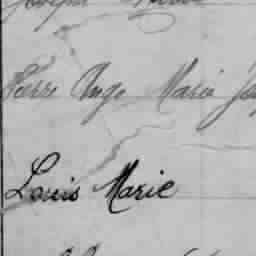 Joseph
Pierre Ange Marie
Louis Marie